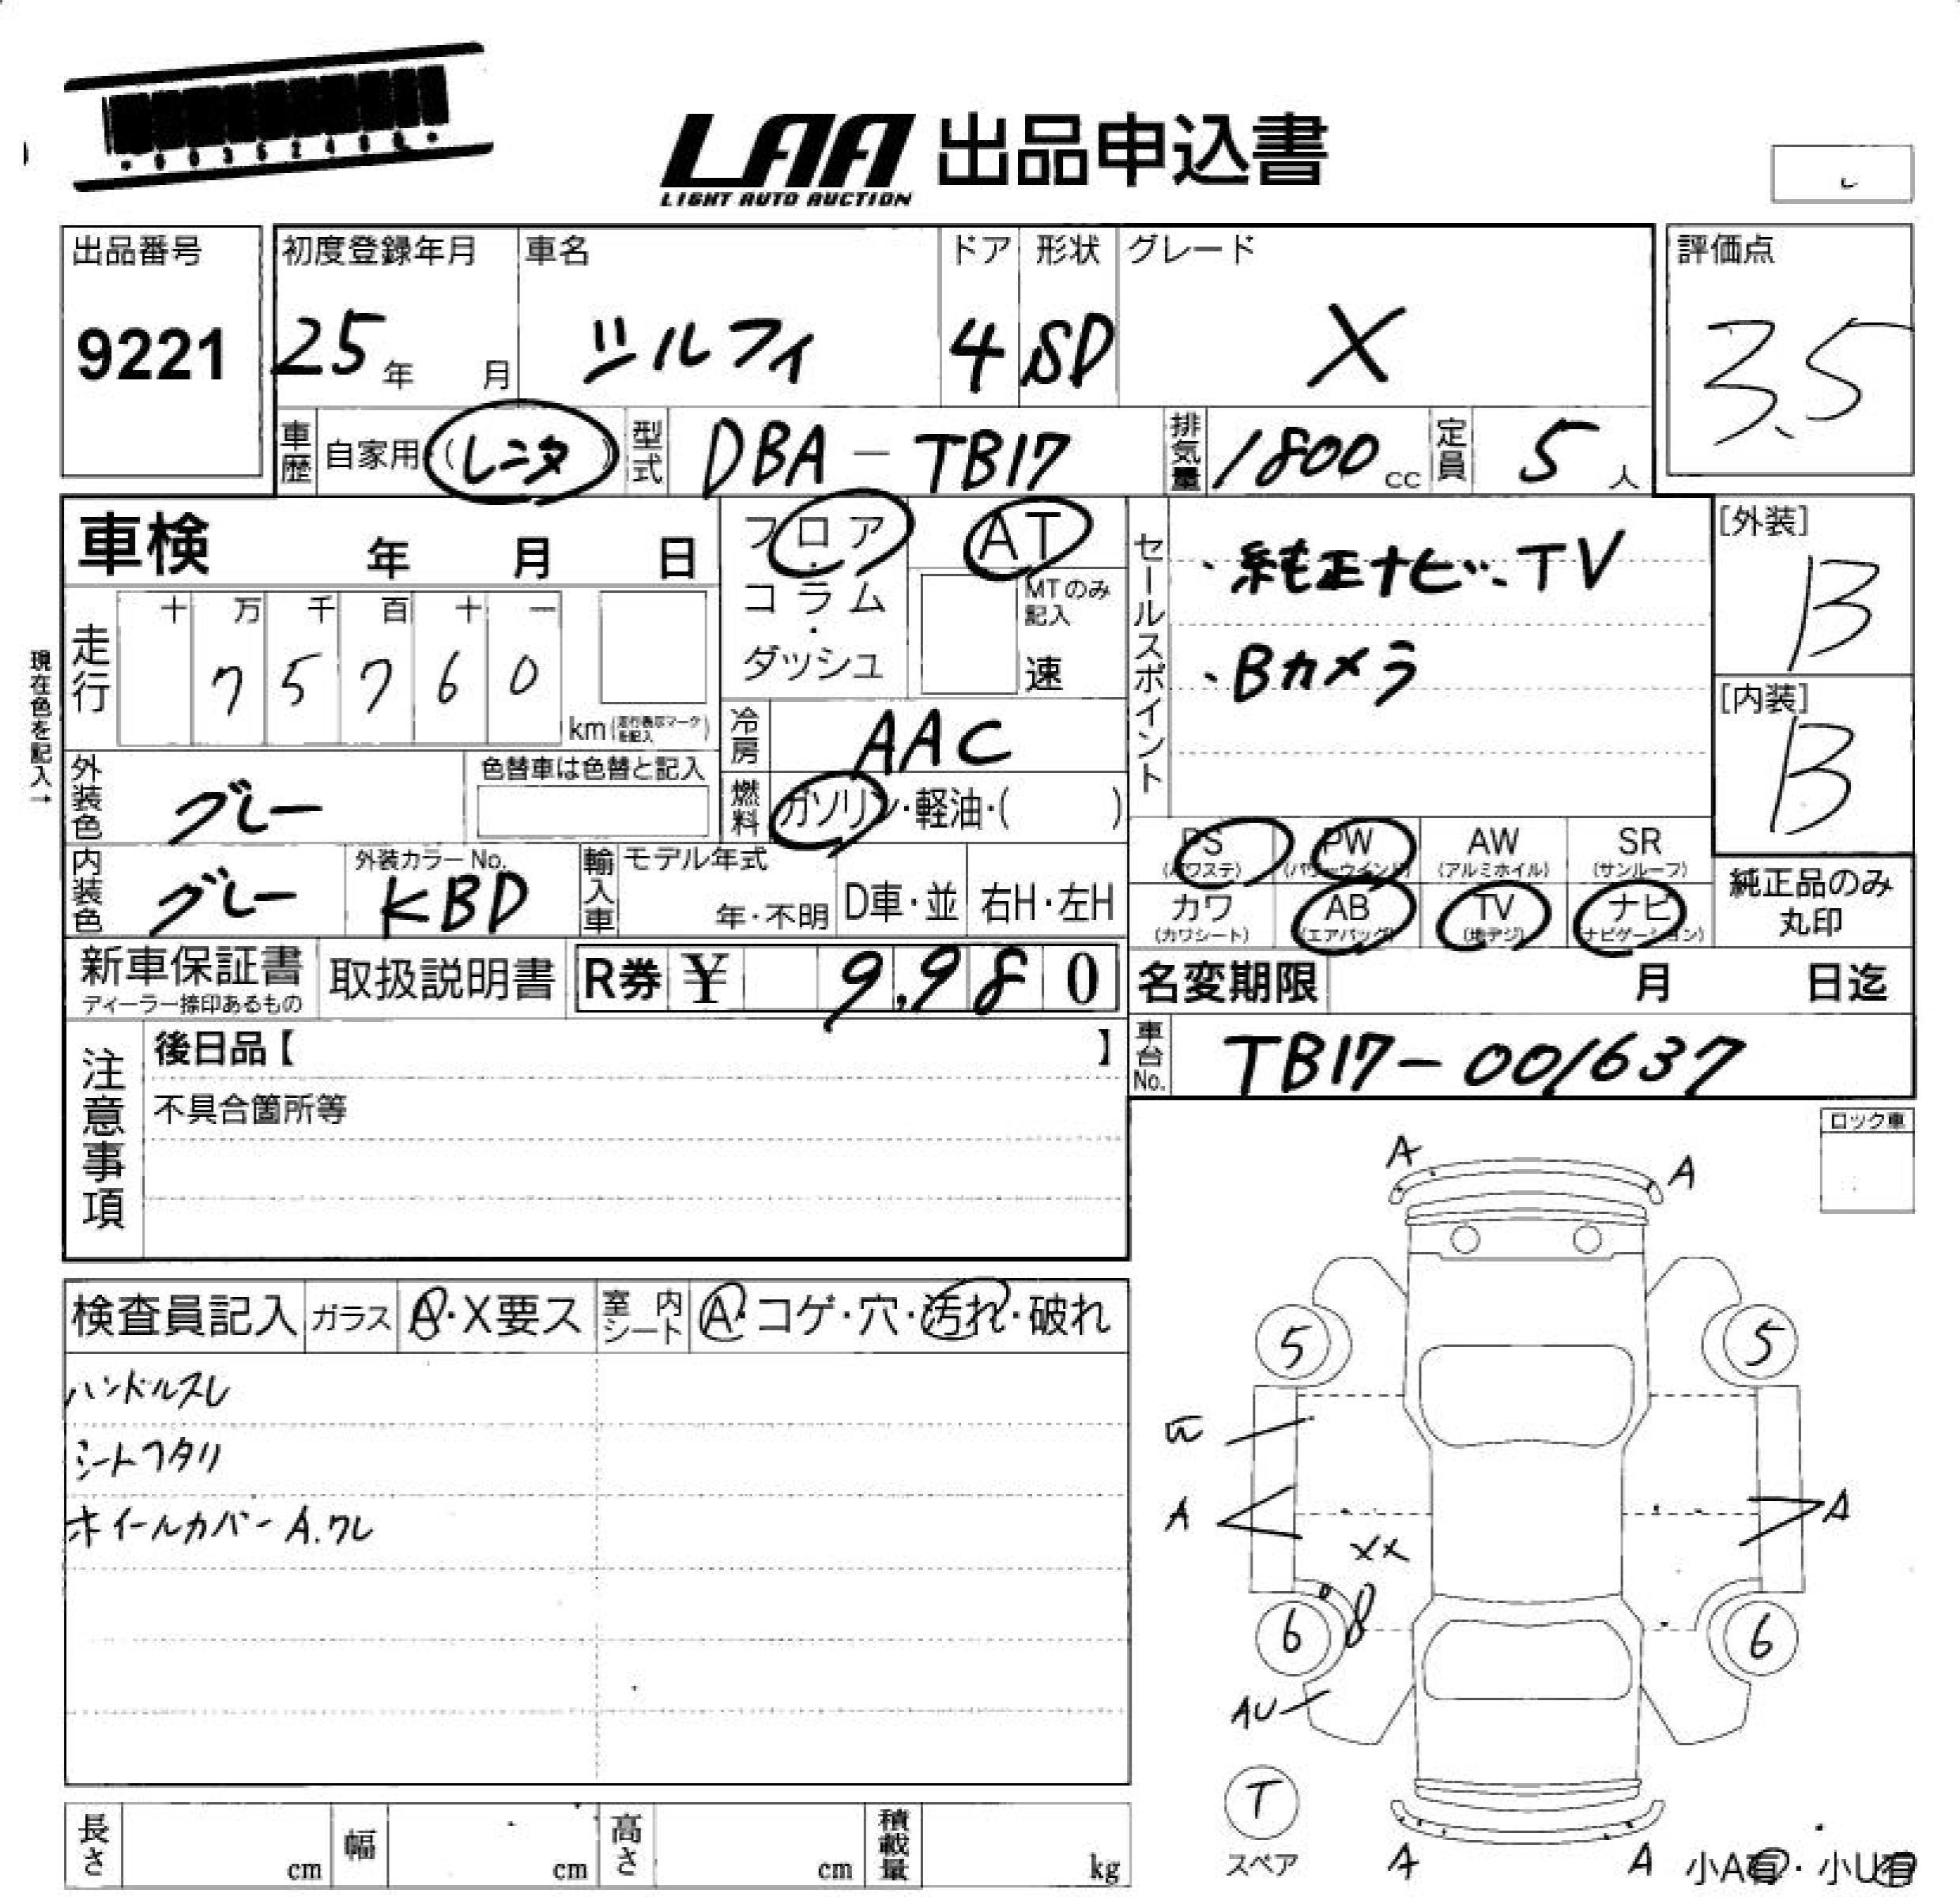 LAA 出品申込書
LIGHT AUTO AUCTION
出品番号
9221
初度登録年月
25年 月
車名
シルフィ
ドア
4
形状
SD
グレード
X
評価点
3.5
車歴 自家用 (レンタ)
型式 DBA-TB17
排気量 1800cc
定員 5人
車検 年 月 日
フロア・コラム・ダッシュ
AT
MTのみ記入
速
セールスポイント
・純正ナビ、TV
・Bカメラ
[外装]
B
[内装]
B
現在色を記入→
走行
十 万 千 百 十 一
7 5 7 6 0
km (走行表示マークを記入)
冷房 AAC
燃料 ガソリン・軽油・( )
外装色 グレー
色替車は色替と記入
内装色 グレー
外装カラーNo.
KBD
輸入車 モデル年式
年・不明
D車・並
右H・左H
PS (パワステ)
PW (パワーウインド)
AW (アルミホイル)
SR (サンルーフ)
カワ (カワシート)
AB (エアバッグ)
TV (地デジ)
ナビ (ナビゲーション)
純正品のみ丸印
新車保証書
ディーラー捺印あるもの
取扱説明書
R券 ¥ 9,980
名変期限 月 日迄
車台No. TB17-001637
注意事項
後日品【 】
不具合箇所等
ロック車
検査員記入
ガラス A・X要ス
室内シート A・コゲ・穴・汚れ・破れ
ハンドルスレ
シートヘタリ
ホイールカバーA.ワレ
A
A
5
5
A
A
XX
6
6
AU
T
スペア
A
A
小A有・小U有
長さ cm
幅 cm
高さ cm
積載量 kg